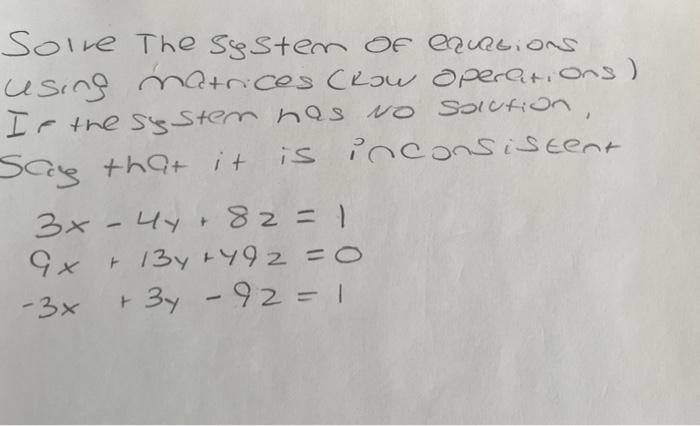 Solve The System OF equations
using matrices (Row operations)
IF the system has NO Solution,
Say that it is inconsistent
3x - 4y + 8z = 1
9x + 13y + 49z = 0
-3x + 3y - 9z = 1